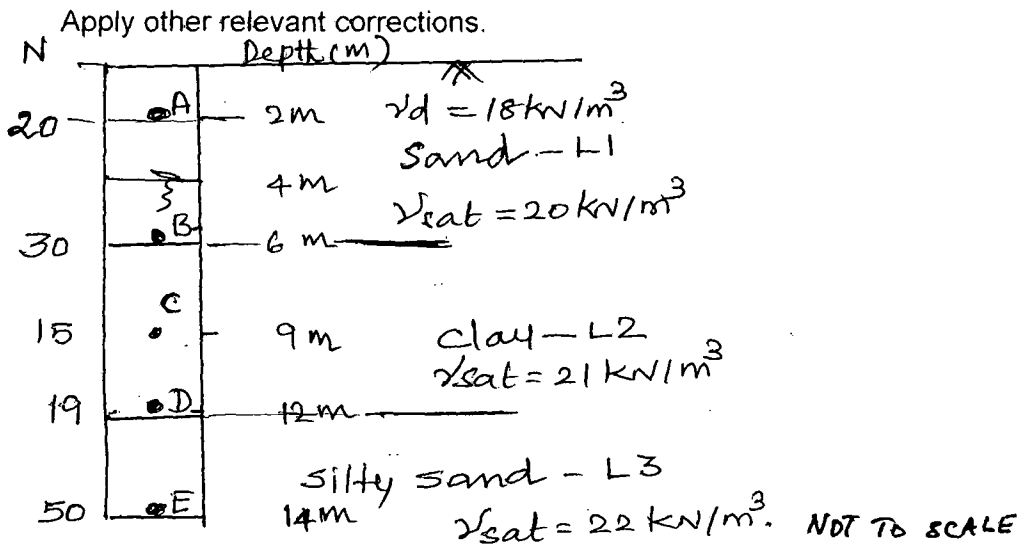 Apply other relevant corrections.
N Depth (m)
20 A 2m γd = 18 kN/m³
Sand - L1
4m
γsat = 20 kN/m³
30 B 6 m
C
15 9m clay - L2
γsat = 21 kN/m³
19 D 12m
silty sand - L3
50 E 14m γsat = 22 kN/m³. NOT TO SCALE